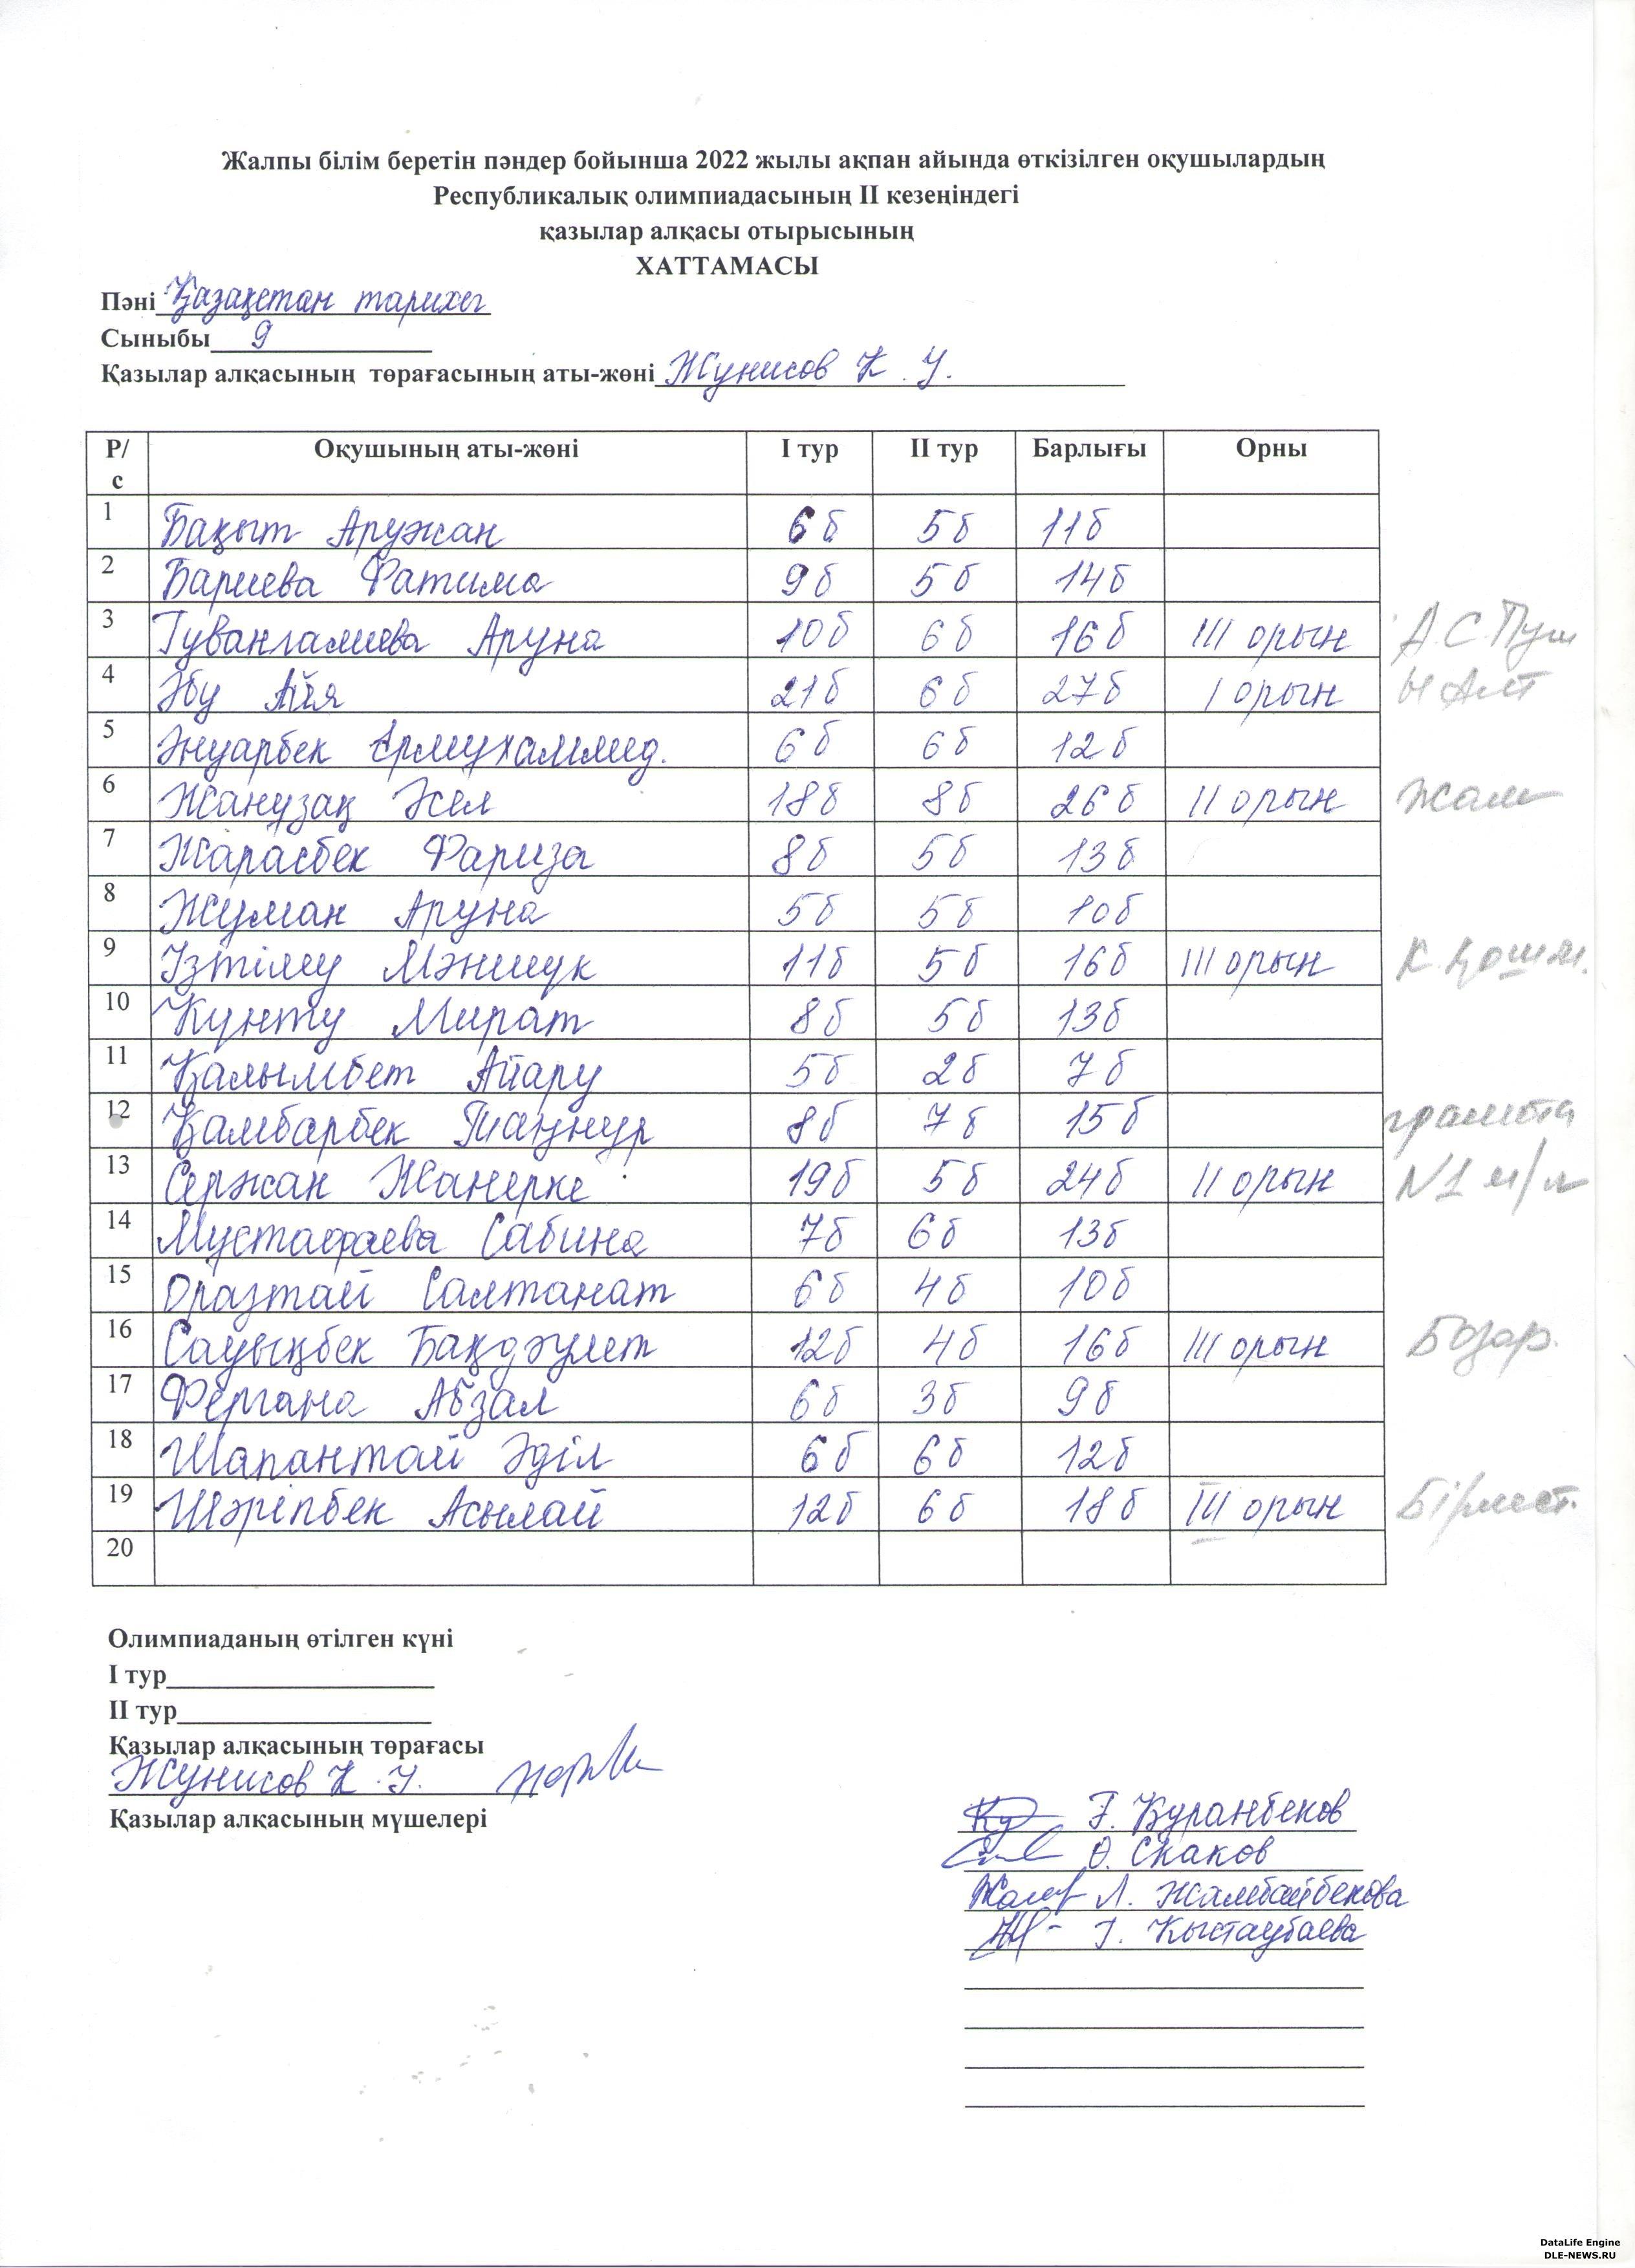 Жалпы білім беретін пәндер бойынша 2022 жылы ақпан айында өткізілген оқушылардың
Республикалық олимпиадасының II кезеңіндегі
қазылар алқасы отырысының
ХАТТАМАСЫ
Пәні Қазақстан тарихы
Сыныбы 9
Қазылар алқасының төрағасының аты-жөні Жунисов К. У.
Р/с Оқушының аты-жөні I тур II тур Барлығы Орны
1 Бақыт Аружан 6б 5б 11б
2 Бариева Фатима 9б 5б 14б
3 Туванғалиева Аруна 10б 6б 16б III орын А.С.Пуш
4 Әбу Айя 21б 6б 27б I орын Ы Алт
5 Әнуарбек Ермухаммед. 6б 6б 12б
6 Жанұзақ Әсел 18б 8б 26б II орын Жам
7 Жарасбек Фариза 8б 5б 13б
8 Жуман Аруна 5б 5б 10б
9 Ізтілеу Мәншук 11б 5б 16б III орын К.Қошм.
10 Күнту Мират 8б 5б 13б
11 Қалымбет Айару 5б 2б 7б
12 Қамбарбек Таңнұр 8б 7б 15б грамота
13 Сержан Жанерке 19б 5б 24б II орын N1 м/л
14 Мустафаева Сабина 7б 6б 13б
15 Оразтай Салтанат 6б 4б 10б
16 Сауықбек Бақдәулет 12б 4б 16б III орын Бозар.
17 Фергана Абзал 6б 3б 9б
18 Шапантай Әділ 6б 6б 12б
19 Шәріпбек Асылай 12б 6б 18б III орын Бірлест.
20
Олимпиаданың өтілген күні
I тур
II тур
Қазылар алқасының төрағасы
Жунисов К. У.
Қазылар алқасының мүшелері
Ғ. Құранбеков
Ө. Скаков
Л. Жамбайбекова
Г. Кыстаубаева
DataLife Engine
DLE-NEWS.RU